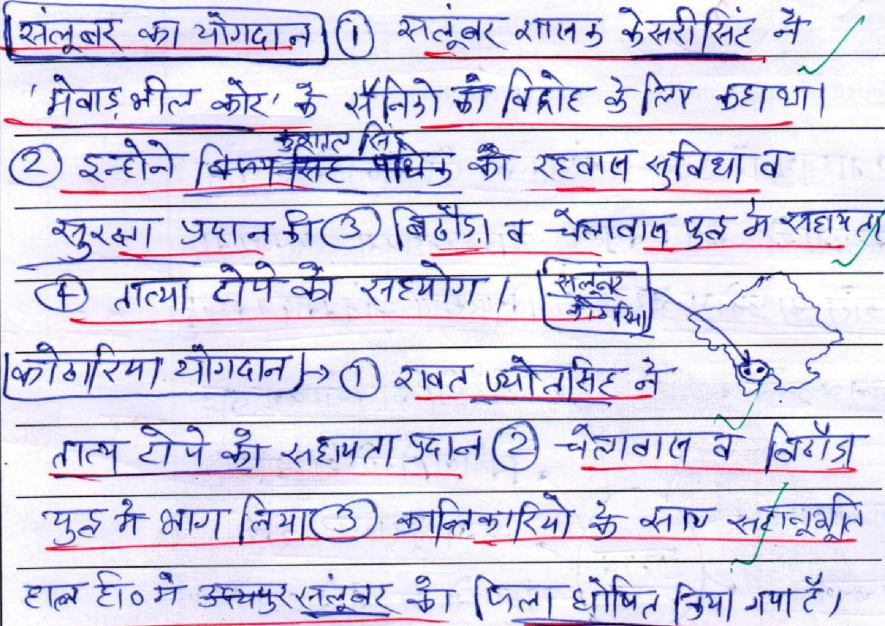 सलूंबर का योगदान ① सलूंबर शासक केसरीसिंह ने
'मेवाड़ भील कोर' के सैनिकों को विद्रोह के लिए कहा था।
कुशाल सिंह
② इन्होने विजय सिंह पथिक को रहवास सुविधा व
सुरक्षा प्रदान की ③ बिठौडा व चेलावास युद्ध मे सहायता
④ तात्या टोपे को सहयोग।
सलूंबर
कोठारिया
कोठारिया योगदान → ① रावत ज्योतसिंह ने
तात्य टोपे को सहायता प्रदान ② चेलावास व बिठौडा
युद्ध मे भाग लिया ③ क्रान्तिकारियो के साथ सहानुभूति
हाल ही० मे उदयपुर सलूंबर को जिला घोषित किया गया है।